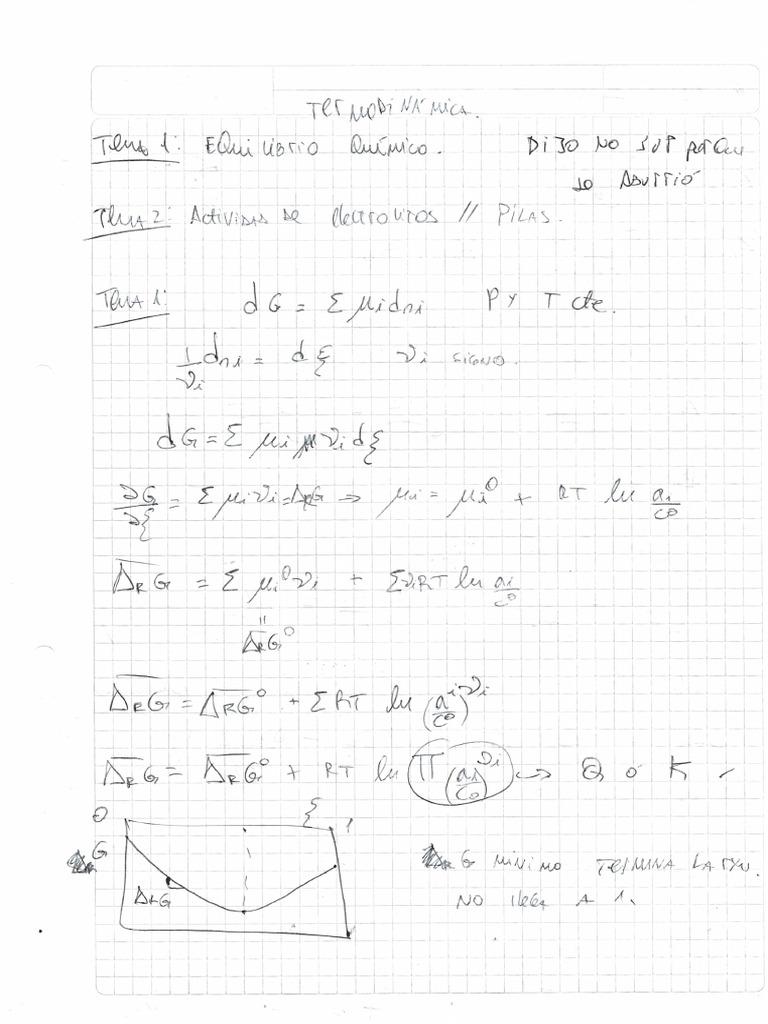 TERMODINÁMICA.
Tema 1: EQUILIBRIO QUÍMICO. DIJO NO SUP porque
se ABURRIÓ
Tema 2: Actividad de electrolitos // PILAS.
Tema 1: dG = Σ μi dni P y T cte.
1/νi dni = dξ νi signo.
dG = Σ μi νi dξ
∂G/∂ξ = Σ μi νi = ΔrG ⇒ μi = μi⁰ + RT ln ai/c⁰
ΔRG = Σ μi⁰ νi + Σ νi RT ln ai/c⁰
=
ΔrG⁰
ΔRG = ΔRG⁰ + Σ RT ln (ai/c⁰)^νi
ΔRG = ΔRG⁰ + RT ln Π (ai/c⁰)^νi → Q ó K
0 ξ 1
G
ΔrG
G MÍNIMO TERMINA LA rxn.
NO llega A 1.